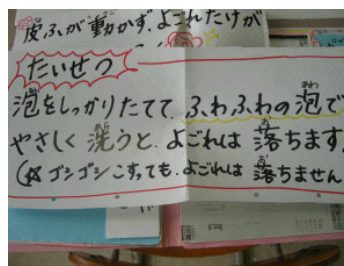 皮ふが動かず、よごれだけが
たいせつ
泡をしっかりたてて、ふわふわの泡で
やさしく洗うと、よごれは落ちます。
(☆ゴシゴシこすっても、よごれは落ちません